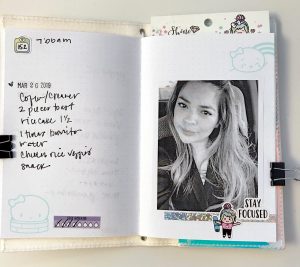 7:00am
MAR 26 2019
Coffee/creamer
2 pieces toast
rice cake 1/2
1 turkey burrito
water
chicken rice veggies
snack
Shine
STAY
FOCUSED